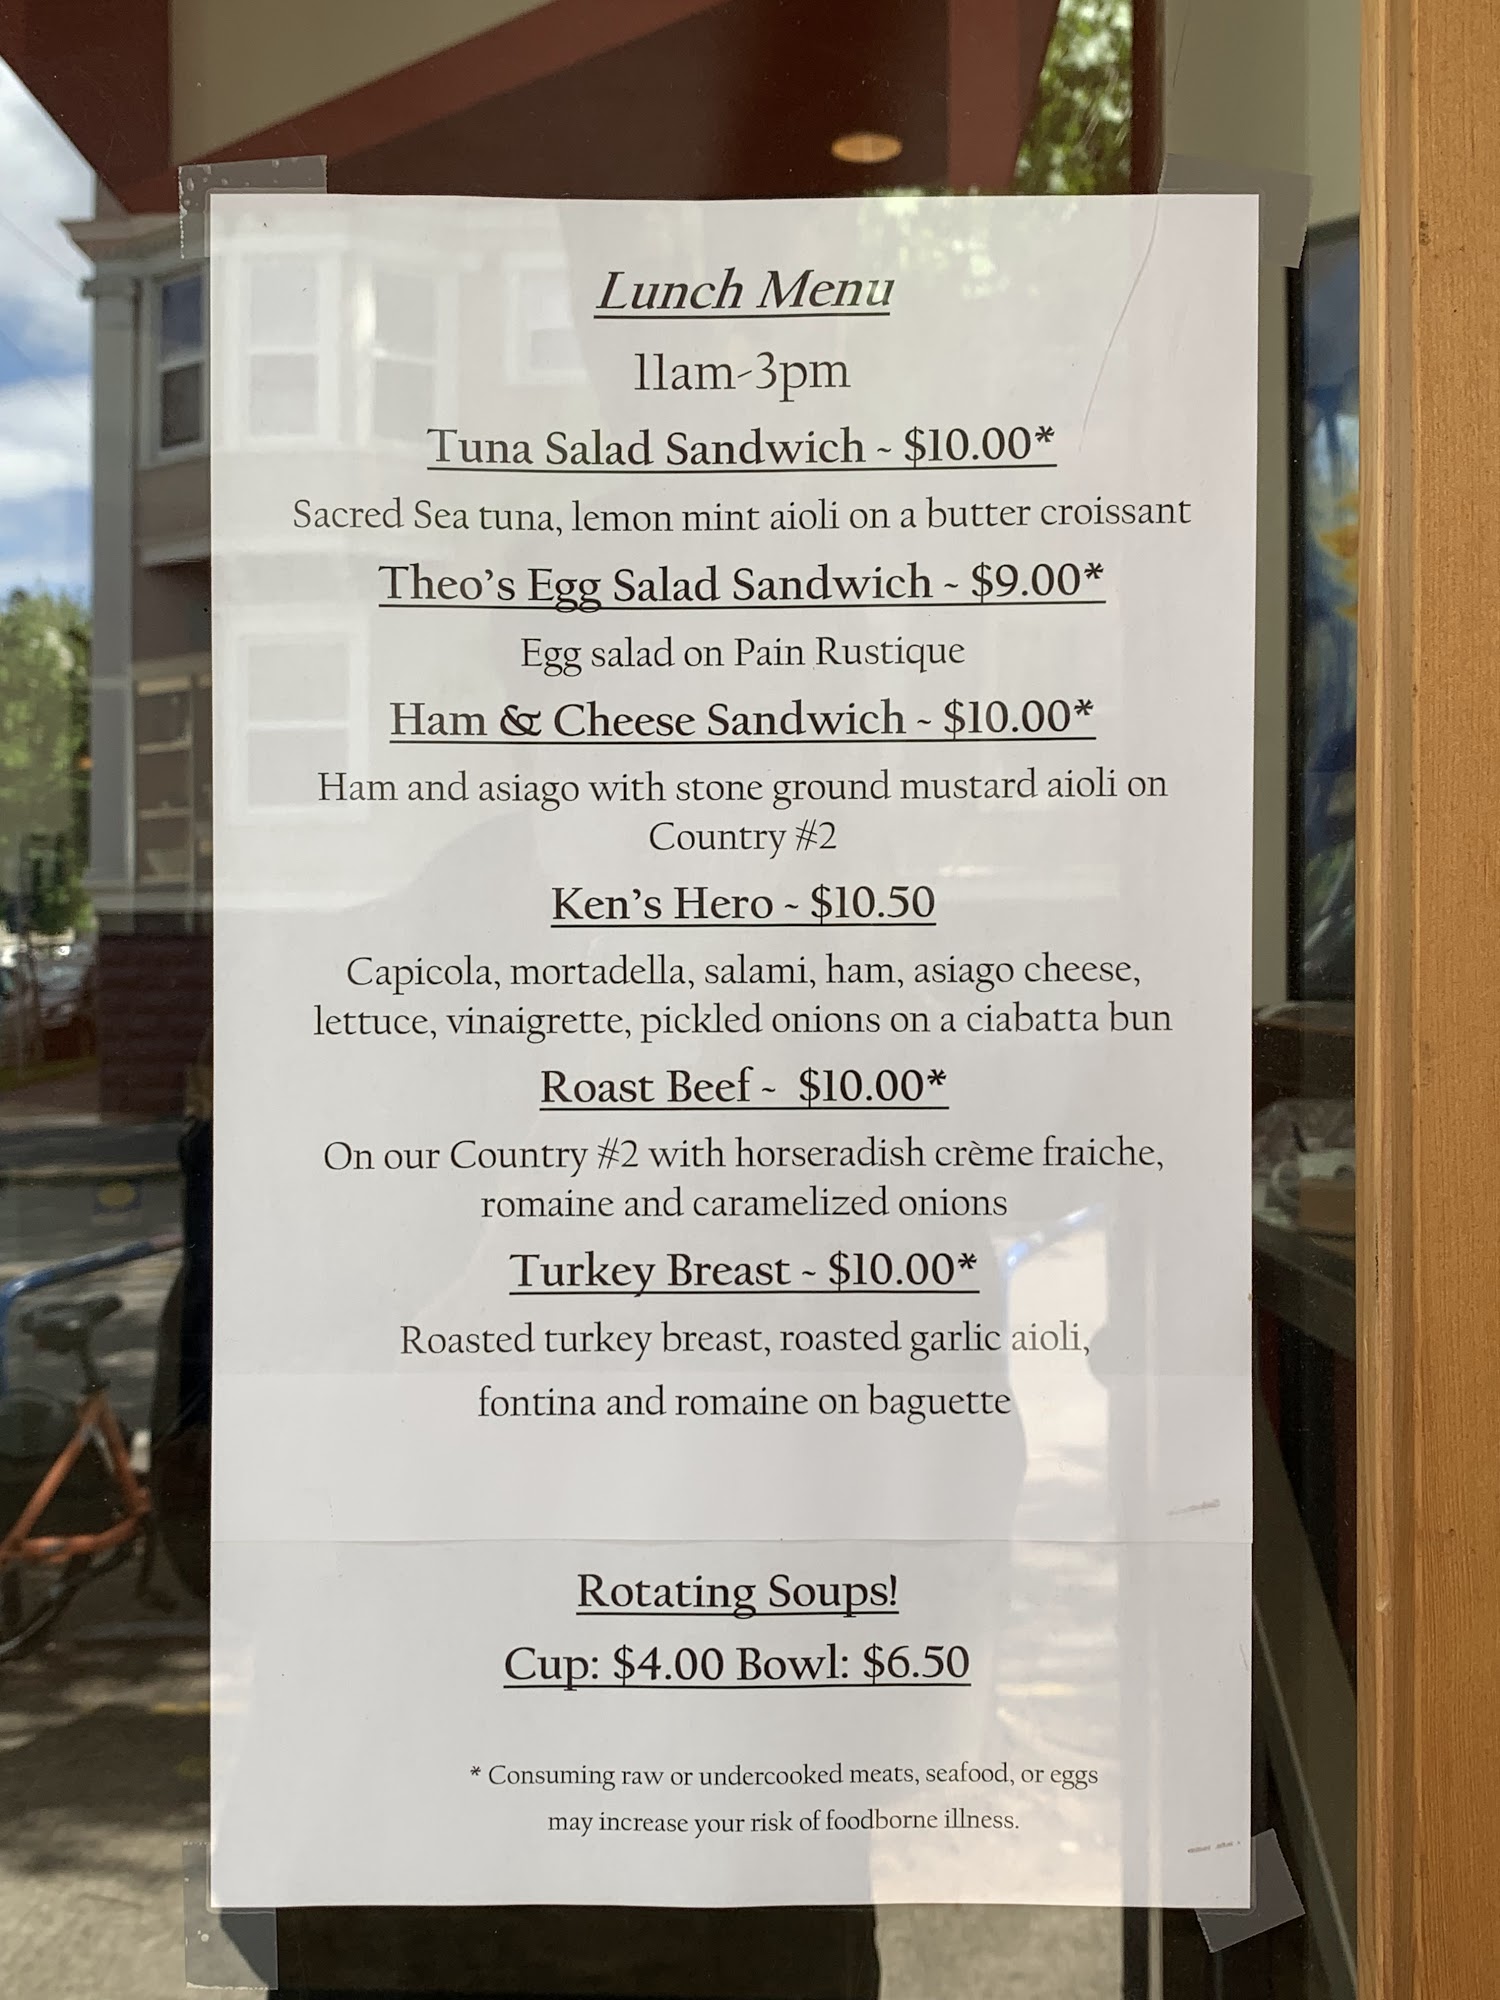 Lunch Menu
11am-3pm
Tuna Salad Sandwich ~ $10.00*
Sacred Sea tuna, lemon mint aioli on a butter croissant
Theo's Egg Salad Sandwich ~ $9.00*
Egg salad on Pain Rustique
Ham & Cheese Sandwich ~ $10.00*
Ham and asiago with stone ground mustard aioli on
Country #2
Ken's Hero ~ $10.50
Capicola, mortadella, salami, ham, asiago cheese,
lettuce, vinaigrette, pickled onions on a ciabatta bun
Roast Beef ~ $10.00*
On our Country #2 with horseradish crème fraiche,
romaine and caramelized onions
Turkey Breast ~ $10.00*
Roasted turkey breast, roasted garlic aioli,
fontina and romaine on baguette
Rotating Soups!
Cup: $4.00 Bowl: $6.50
* Consuming raw or undercooked meats, seafood, or eggs
may increase your risk of foodborne illness.